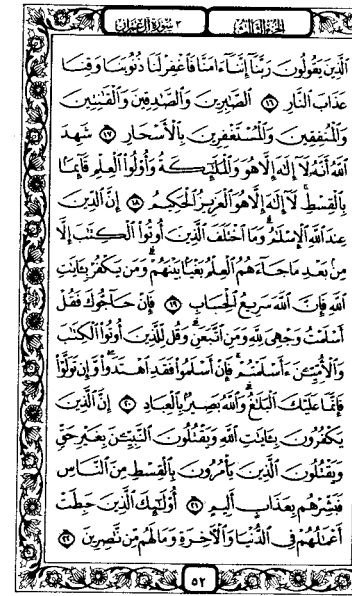 الجزء الثالث ٣ سورة آل عمران
الَّذِينَ يَقُولُونَ رَبَّنَا إِنَّنَا ءَامَنَّا فَاغْفِرْ لَنَا ذُنُوبَنَا وَقِنَا
عَذَابَ النَّارِ ١٦ الصَّابِرِينَ وَالصَّادِقِينَ وَالْقَانِتِينَ
وَالْمُنفِقِينَ وَالْمُسْتَغْفِرِينَ بِالْأَسْحَارِ ١٧ شَهِدَ
اللَّهُ أَنَّهُ لَا إِلَهَ إِلَّا هُوَ وَالْمَلَائِكَةُ وَأُولُوا الْعِلْمِ قَائِمًا
بِالْقِسْطِ لَا إِلَهَ إِلَّا هُوَ الْعَزِيزُ الْحَكِيمُ ١٨ إِنَّ الدِّينَ
عِندَ اللَّهِ الْإِسْلَامُ وَمَا اخْتَلَفَ الَّذِينَ أُوتُوا الْكِتَابَ إِلَّا
مِن بَعْدِ مَا جَاءَهُمُ الْعِلْمُ بَغْيًا بَيْنَهُمْ وَمَن يَكْفُرْ بِـَايَاتِ
اللَّهِ فَإِنَّ اللَّهَ سَرِيعُ الْحِسَابِ ١٩ فَإِنْ حَاجُّوكَ فَقُلْ
أَسْلَمْتُ وَجْهِيَ لِلَّهِ وَمَنِ اتَّبَعَنِ وَقُل لِّلَّذِينَ أُوتُوا الْكِتَابَ
وَالْأُمِّيِّـنَ ءَأَسْلَمْتُمْ فَإِنْ أَسْلَمُوا فَقَدِ اهْتَدَوا وَّإِن تَوَلَّوْا
فَإِنَّمَا عَلَيْكَ الْبَلَاغُ وَاللَّهُ بَصِيرٌ بِالْعِبَادِ ٢٠ إِنَّ الَّذِينَ
يَكْفُرُونَ بِـَايَاتِ اللَّهِ وَيَقْتُلُونَ النَّبِيِّـنَ بِغَيْرِ حَقٍّ
وَيَقْتُلُونَ الَّذِينَ يَأْمُرُونَ بِالْقِسْطِ مِنَ النَّاسِ
فَبَشِّرْهُم بِعَذَابٍ أَلِيمٍ ٢١ أُولَئِكَ الَّذِينَ حَبِطَتْ
أَعْمَالُهُمْ فِي الدُّنْيَا وَالْآخِرَةِ وَمَا لَهُم مِّن نَّاصِرِينَ ٢٢
٥٢